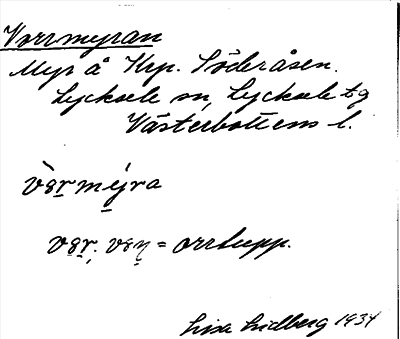 Vorrmyran
Myr å Krp. Söderåsen.
Lycksele sn, Lycksele tg
Västerbottens l.
vèr̤mýra
vɛr̤; vɛṇ = orrtupp.
Lisa Lidberg 1934